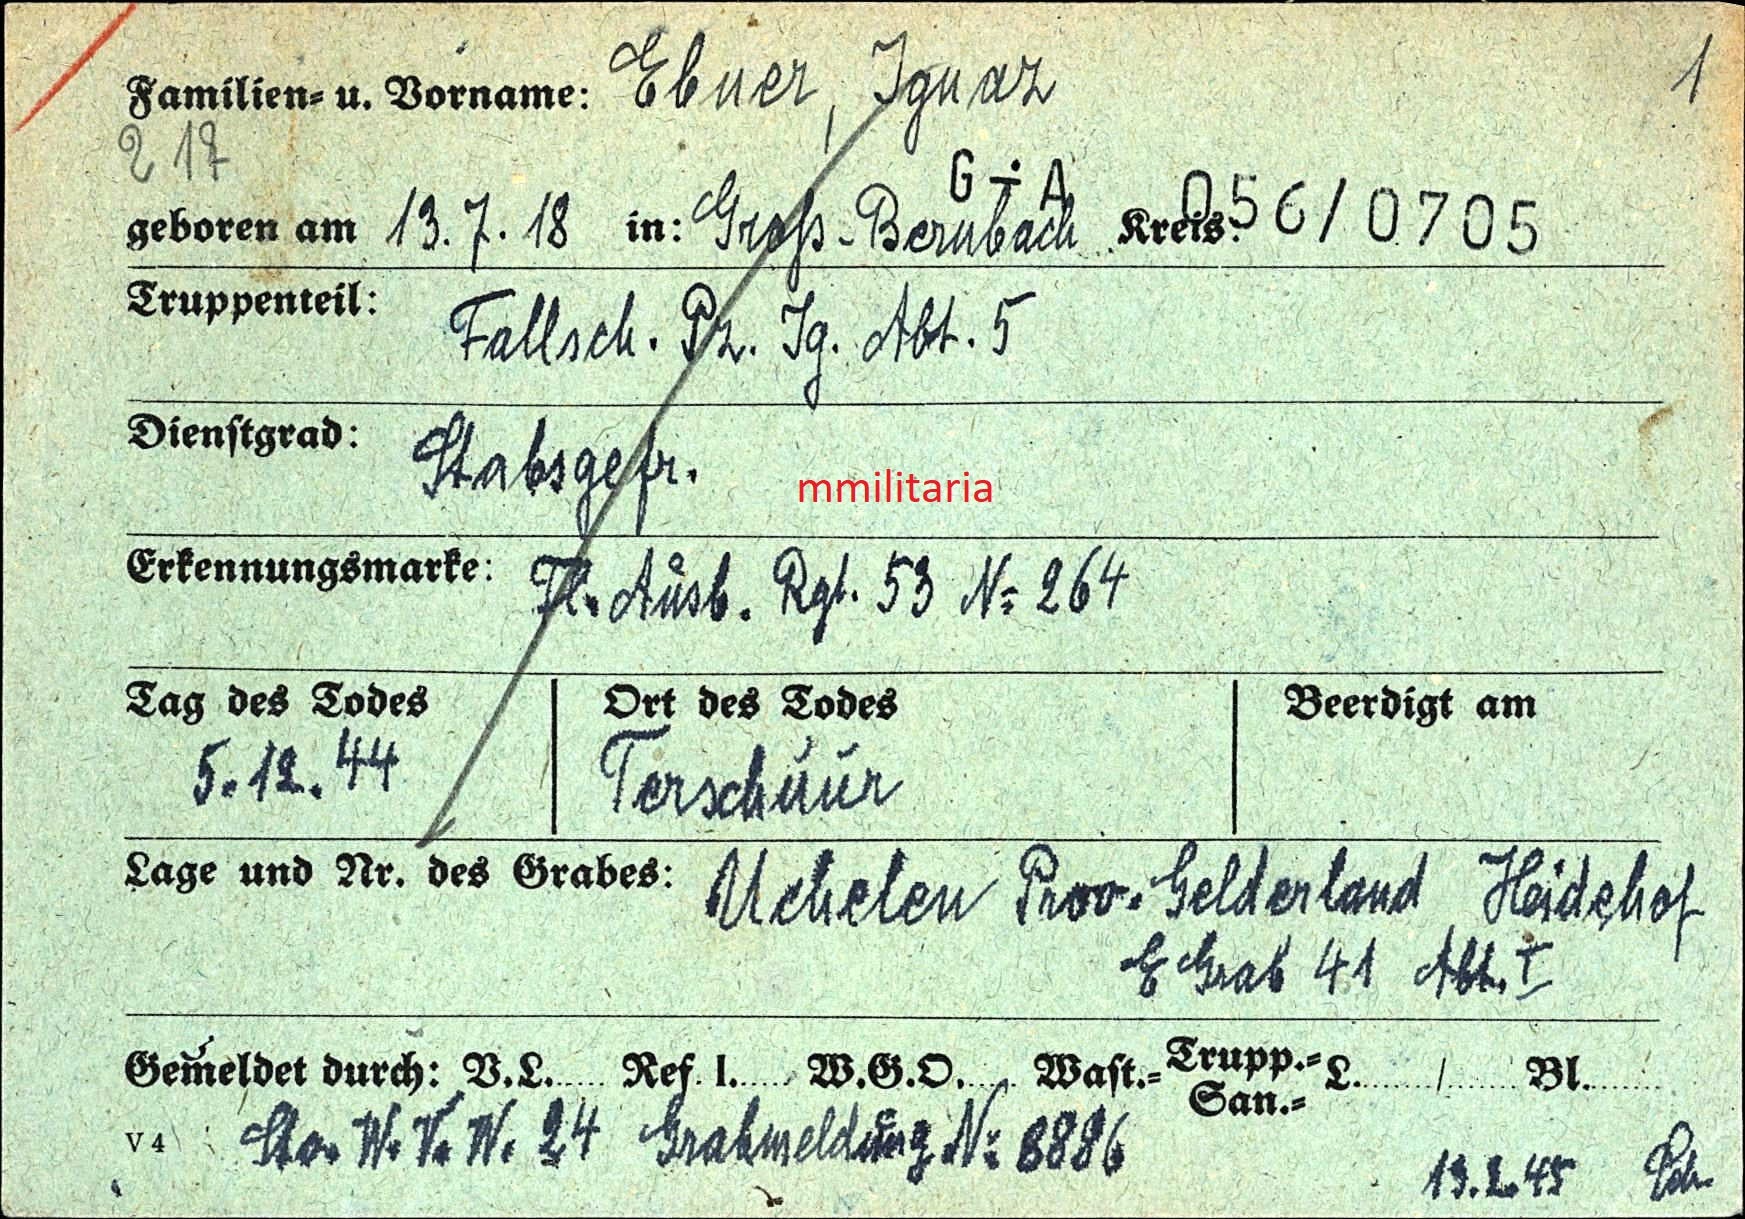 Familien= u. Vorname: Ebner, Ignaz
1
217
G ÷ A 056/0705
geboren am 13.7.18 in: Groß-Bernbach Kreis:
Truppenteil: Fallsch. Pz. Jg. Abt. 5
Dienstgrad: Stabsgefr.
mmilitaria
Erkennungsmarke: Fl. Ausb. Rgt. 53 N= 264
Tag des Todes Ort des Todes Beerdigt am
5.12.44 Terschuur
Lage und Nr. des Grabes: Uchelen Prov. Gelderland Heidehof
E Grab 41 Abt. I
Gemeldet durch: V.L..... Ref. I..... W.G.O..... Wast.= Trupp.= San.= L......./....... Bl.......
V 4 Sta. W. V. W. 24 Grabmeldung N= 8886
19.2.45